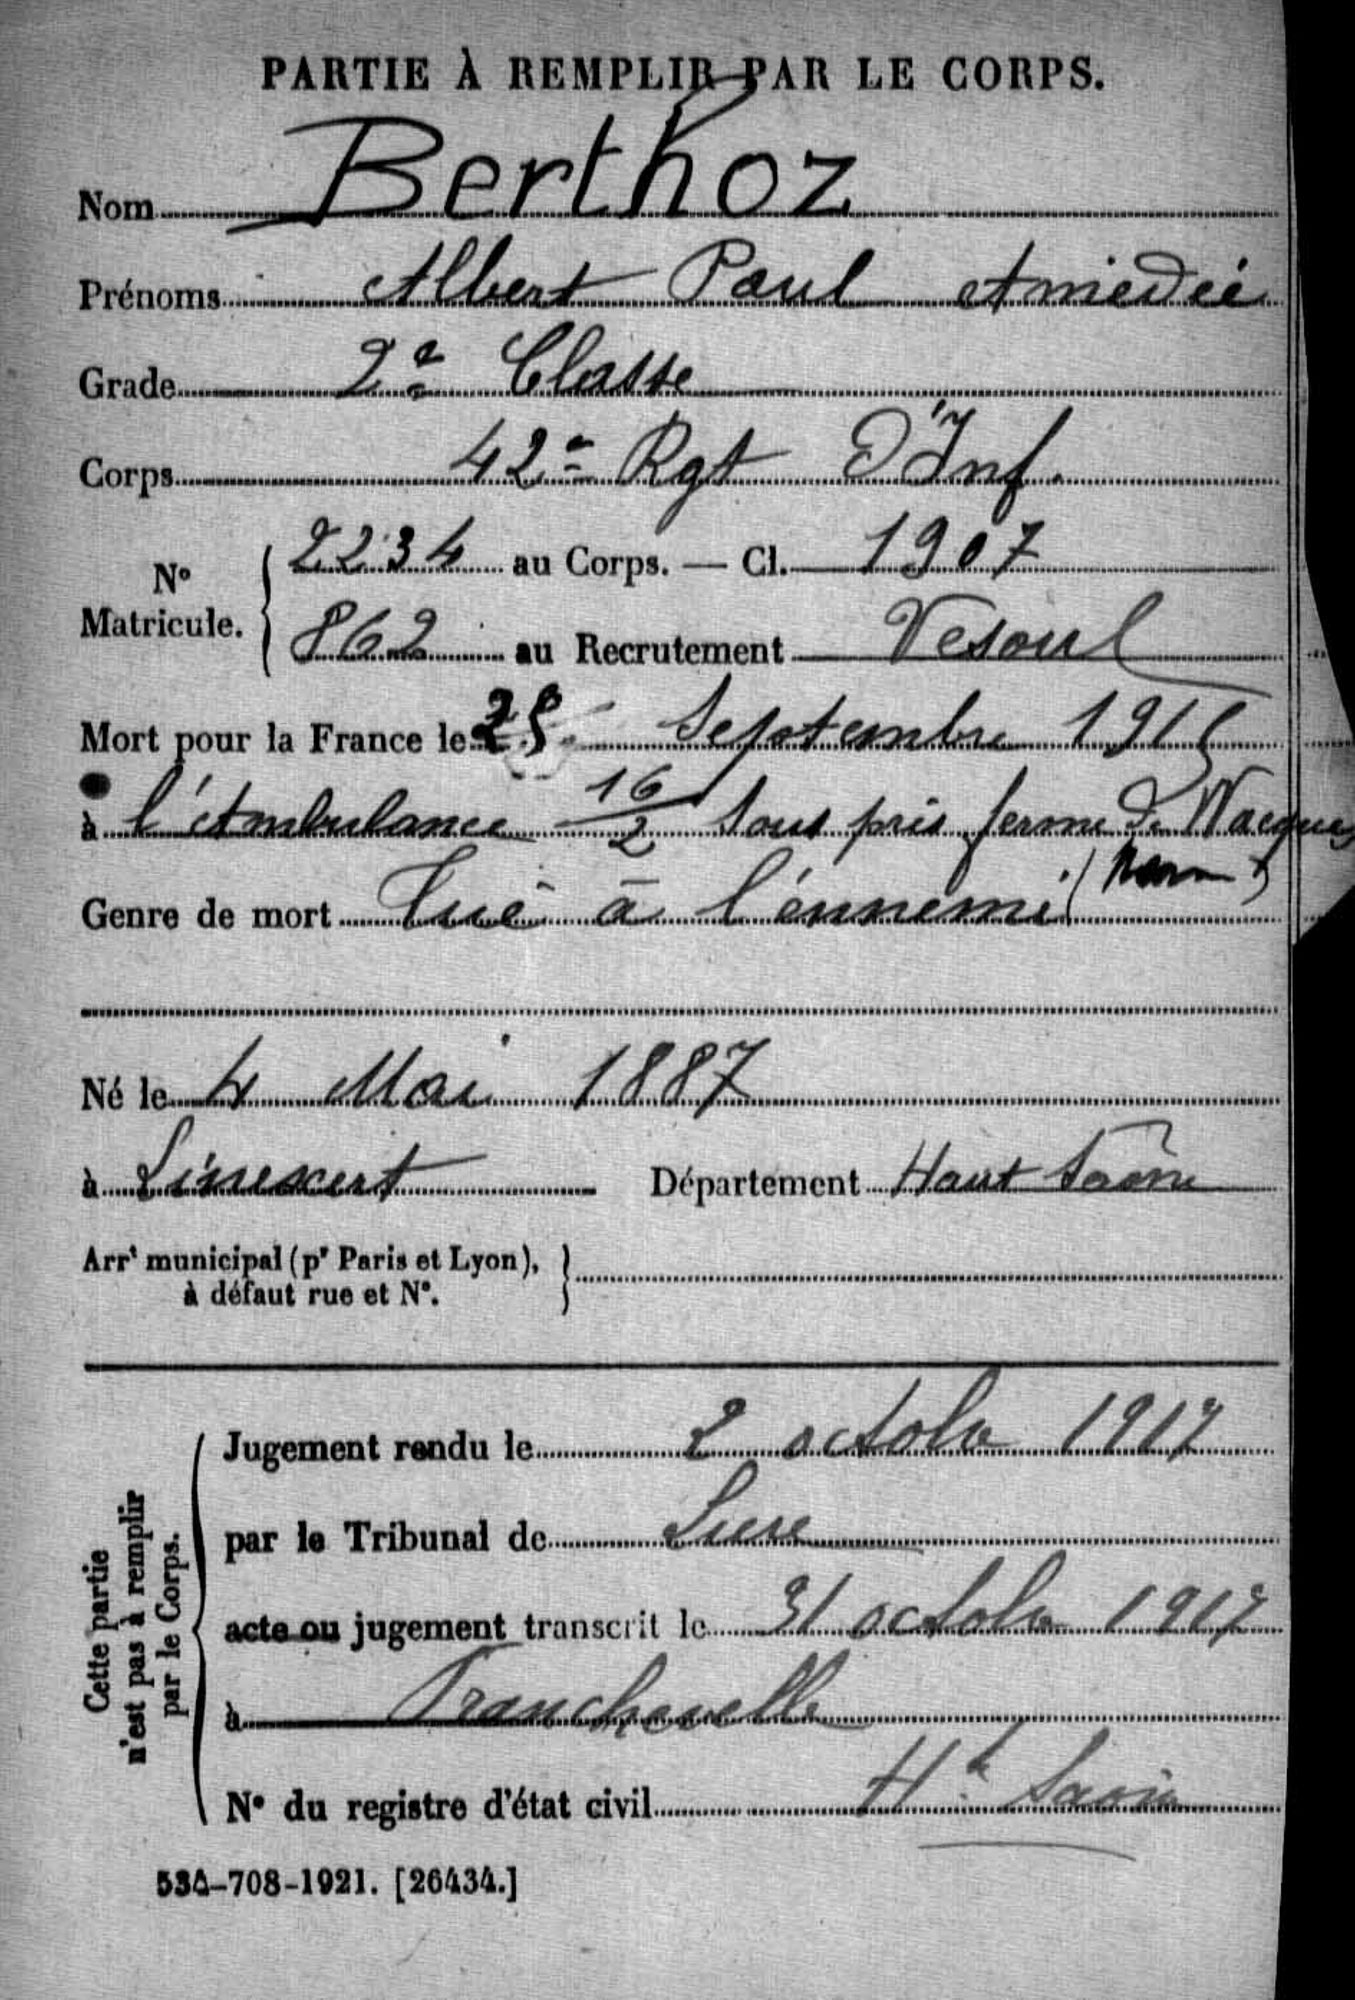 PARTIE À REMPLIR PAR LE CORPS.
Nom Berthoz
Prénoms Albert Paul Amédée
Grade 2e Classe
Corps 42e Rgt D'Inf.
N° Matricule. 2234 au Corps. — Cl. 1907
862 au Recrutement Vesoul
Mort pour la France le 25 Septembre 1915
à l'Ambulance 16/2 sous pris ferme de Wacques
(Marne)
Genre de mort Tué à l'énnemi
Né le 4 Mai 1887
à Linexert Département Haut Saône
Arrt municipal (pr Paris et Lyon),
à défaut rue et N°.
Cette partie n'est pas à remplir par le Corps.
Jugement rendu le 2 octobre 1917
par le Tribunal de Lure
acte ou jugement transcrit le 31 octobre 1917
à Franchevelle
N° du registre d'état civil Hte Saône
534-708-1921. [26434.]